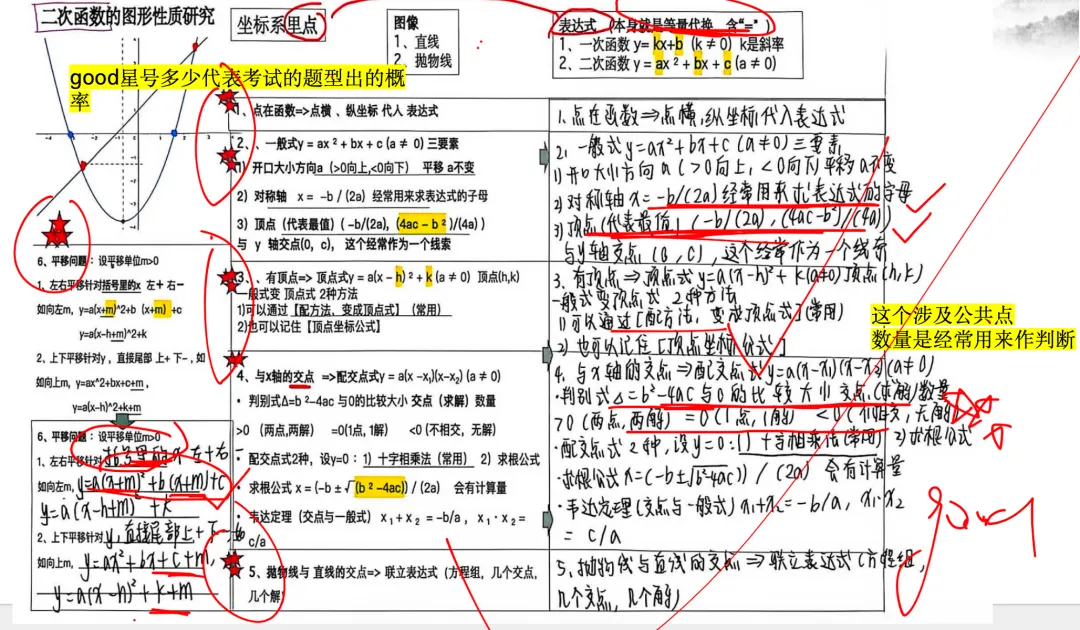 二次函数的图形性质研究
坐标系里点
图像
1、直线
2、抛物线
表达式 (本身就是等量代换 含“=” )
1、一次函数 y= kx+b (k ≠ 0) k是斜率
2、二次函数 y = ax ² + bx + c (a ≠ 0)
good星号多少代表考试的题型出的概
率
1、点在函数=>点横 、纵坐标 代人 表达式
2、、一般式y = ax ² + bx + c (a ≠ 0) 三要素
1) 开口大小方向a (>0向上,<0向下) 平移 a不变
2) 对称轴 x = −b / (2a) 经常用来求表达式的子母
3) 顶点 (代表最值) ( −b/(2a), (4ac − b ²)/(4a) )
与 y 轴交点(0, c), 这个经常作为一个线索
3、、有顶点=> 顶点式y = a(x − h) ² + k (a ≠ 0) 顶点(h,k)
一般式变 顶点式 2种方法
1)可以通过【配方法，变成顶点式】 (常用)
2)也可以记住【顶点坐标公式】
4、与x轴的交点 =>配交点式y = a(x −x₁)(x−x₂) (a ≠ 0)
• 判别式Δ=b ²−4ac 与0的比较大小 交点 (求解) 数量
>0 (两点,两解) =0(1点, 1解) <0 (不相交, 无解)
• 配交点式2种，设y=0：1) 十字相乘法 (常用) 2) 求根公式
• 求根公式 x = (−b ± √ (b ²−4ac)) / (2a) 会有计算量
• 韦达定理 (交点与一般式) x₁+x₂ = −b/a , x₁ · x₂ =
c/a
5、抛物线与 直线的交点=> 联立表达式 (方程组，几个交点,
几个解)
6、平移问题：设平移单位m>0
1、左右平移针对括号里的x 左＋右−
如向左m, y=a(x+m)^2+b (x+m) +c
y=a(x−h+m)^2+k
2、上下平移针对y , 直接尾部 上＋下−, 如
如向上m, y=ax^2+bx+c+m ,
y=a(x−h)^2+k+m
6、平移问题：设平移单位m>0
1、左右平移针对括号里的x 左＋右−
如向左m, y=a(x+m)²+b(x+m)+c
y=a(x−h+m)²+k
2、上下平移针对y, 直接尾部上＋下−, 如
如向上m, y=ax²+bx+c+m,
y=a(x−h)²+k+m
1、点在函数=>点横,纵坐标代入表达式
2、一般式y=ax²+bx+c (a≠0)三要素
1) 开口大小方向a (>0向上, <0向下)平移a不变
2) 对称轴x=−b/(2a)经常用来求表达式的字母
3) 顶点(代表最值) (−b/(2a), (4ac−b²)/(4a))
与y轴交点(0, c), 这个经常作为一个线索
3、有顶点=>顶点式y=a(x−h)²+k(a≠0)顶点(h,k)
一般式变顶点式 2种方法
1) 可以通过[配方法, 变成顶点式](常用)
2) 也可以记住[顶点坐标公式]
4、与x轴的交点=>配交点式y=a(x−x₁)(x−x₂)(a≠0)
·判别式Δ=b²−4ac与0的比较大小交点(求解)数量
>0 (两点,两解) =0(1点,1解) <0(不相交, 无解)
·配交点式2种,设y=0:1)十字相乘法(常用) 2)求根公式
·求根公式x=(−b±√(b²−4ac)) / (2a) 会有计算量
·韦达定理(交点与一般式) x₁+x₂=−b/a, x₁·x₂
= c/a
5、抛物线与直线的交点=>联立表达式(方程组,
几个交点, 几个解)
这个涉及公共点
数量是经常用来作判断